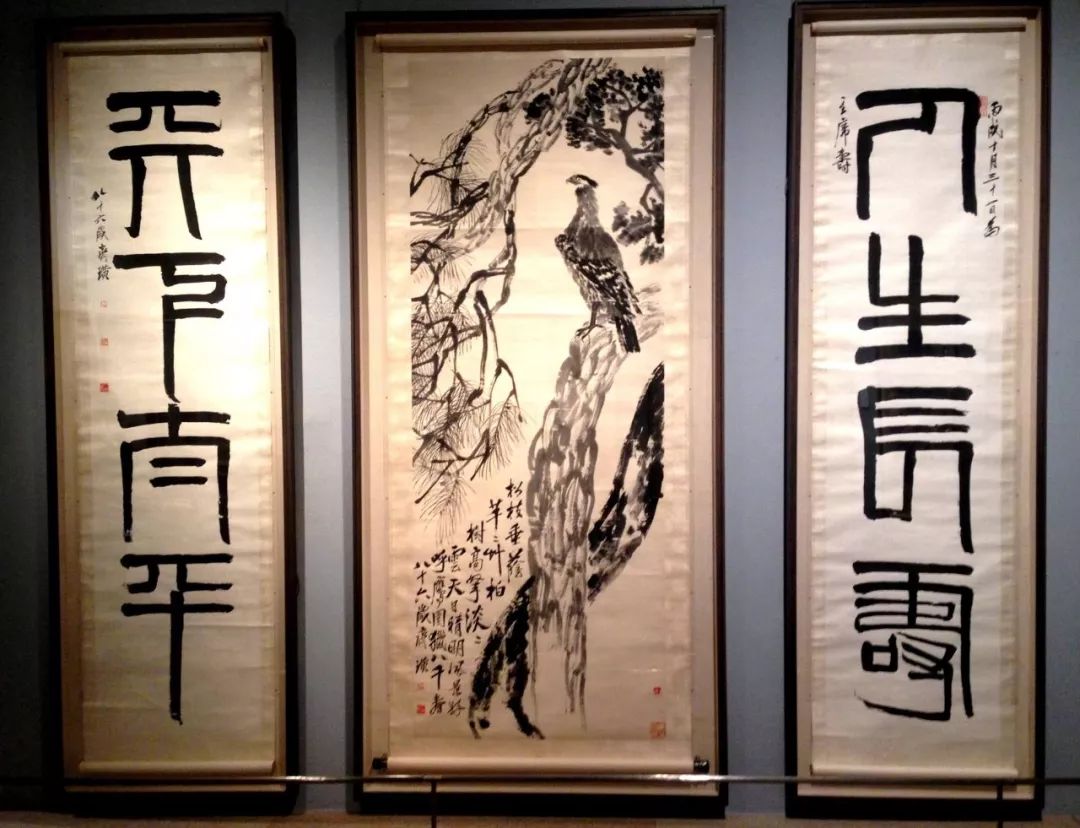 人生長壽
丙戌十月三十一日為
主席壽
松枝垂蔭
芊〻艸柏
樹高擎淡〻
雲天日晴明風景好
呼鷹圍獵八千
八十六歲齊璜
天下太平
八十六歲齊璜